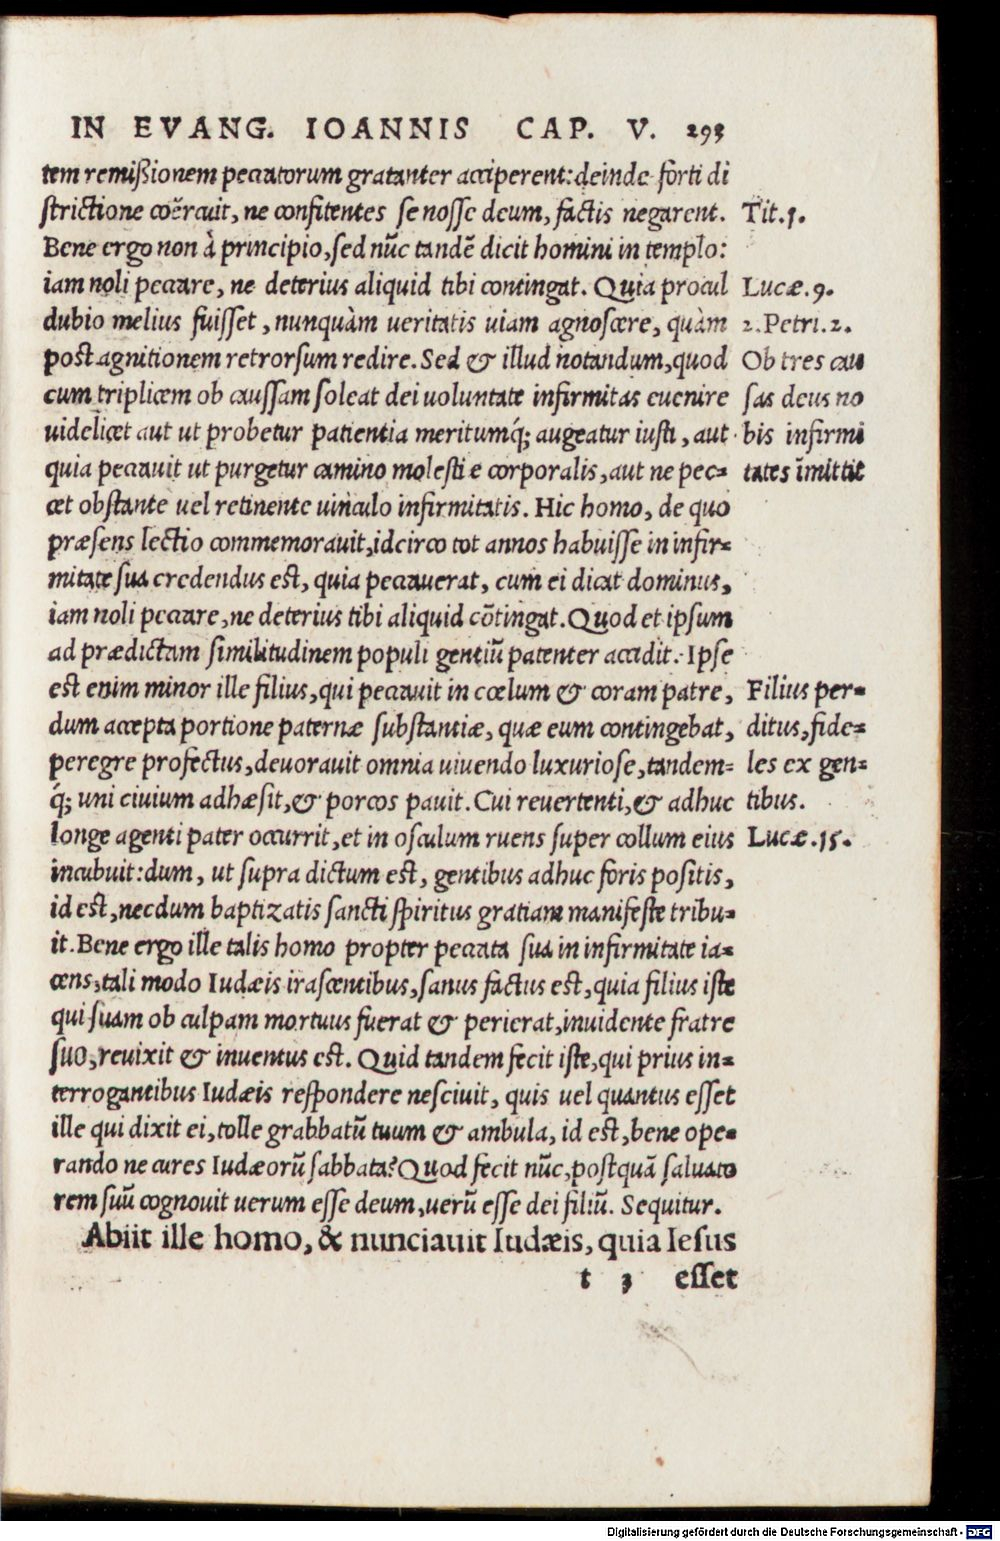 IN EVANG. IOANNIS CAP. V. 293
tem remißionem peccatorum gratanter acciperent: deinde forti di
strictione coërcuit, ne confitentes se nosse deum, factis negarent.
Tit.1.
Bene ergo non à principio, sed nūc tandē dicit homini in templo:
iam noli peccare, ne deterius aliquid tibi contingat. Quia procul
Lucæ.9.
dubio melius fuisset, nunquàm ueritatis uiam agnoscere, quàm
2.Petri.2.
post agnitionem retrorsum redire. Sed & illud notandum, quod
Ob tres cau
cum triplicem ob caussam soleat dei uoluntate infirmitas euenire
sas deus no
uidelicet aut ut probetur patientia meritumq́; augeatur iusti, aut
bis infirmi
quia peccauit ut purgetur camino molestiæ corporalis, aut ne pec-
tates īmittit
cet obstante uel retinente uinculo infirmitatis. Hic homo, de quo
præsens lectio commemorauit, idcirco tot annos habuisse in infir-
mitate sua credendus est, quia peccauerat, cum ei dicat dominus,
iam noli peccare, ne deterius tibi aliquid cōtingat. Quod et ipsum
ad prædictam similitudinem populi gentiū patenter accidit. Ipse
est enim minor ille filius, qui peccauit in cœlum & coram patre,
Filius per-
dum accepta portione paternæ substantiæ, quæ eum contingebat,
ditus, fide-
peregre profectus, deuorauit omnia uiuendo luxuriose, tandem-
les ex gen-
q́; uni ciuium adhæsit, & porcos pauit. Cui reuertenti, & adhuc
tibus.
longe agenti pater occurrit, et in osculum ruens super collum eius
Lucæ.15.
incubuit: dum, ut supra dictum est, gentibus adhuc foris positis,
id est, necdum baptizatis sancti spiritus gratiam manifeste tribu-
it. Bene ergo ille talis homo propter peccata sua in infirmitate ia-
cens, tali modo Iudæis irascentibus, sanus factus est, quia filius iste
qui suam ob culpam mortuus fuerat & perierat, inuidente fratre
suo, reuixit & inuentus est. Quid tandem fecit iste, qui prius in-
terrogantibus Iudæis respondere nesciuit, quis uel quantus esset
ille qui dixit ei, tolle grabbatū tuum & ambula, id est, bene ope-
rando ne cures Iudæorū sabbata? Quod fecit nūc, postquā saluato
rem suū cognouit uerum esse deum, uerū esse dei filiū. Sequitur.
Abiit ille homo, & nunciauit Iudæis, quia Iesus
t 3 esset
Digitalisierung gefördert durch die Deutsche Forschungsgemeinschaft - DFG